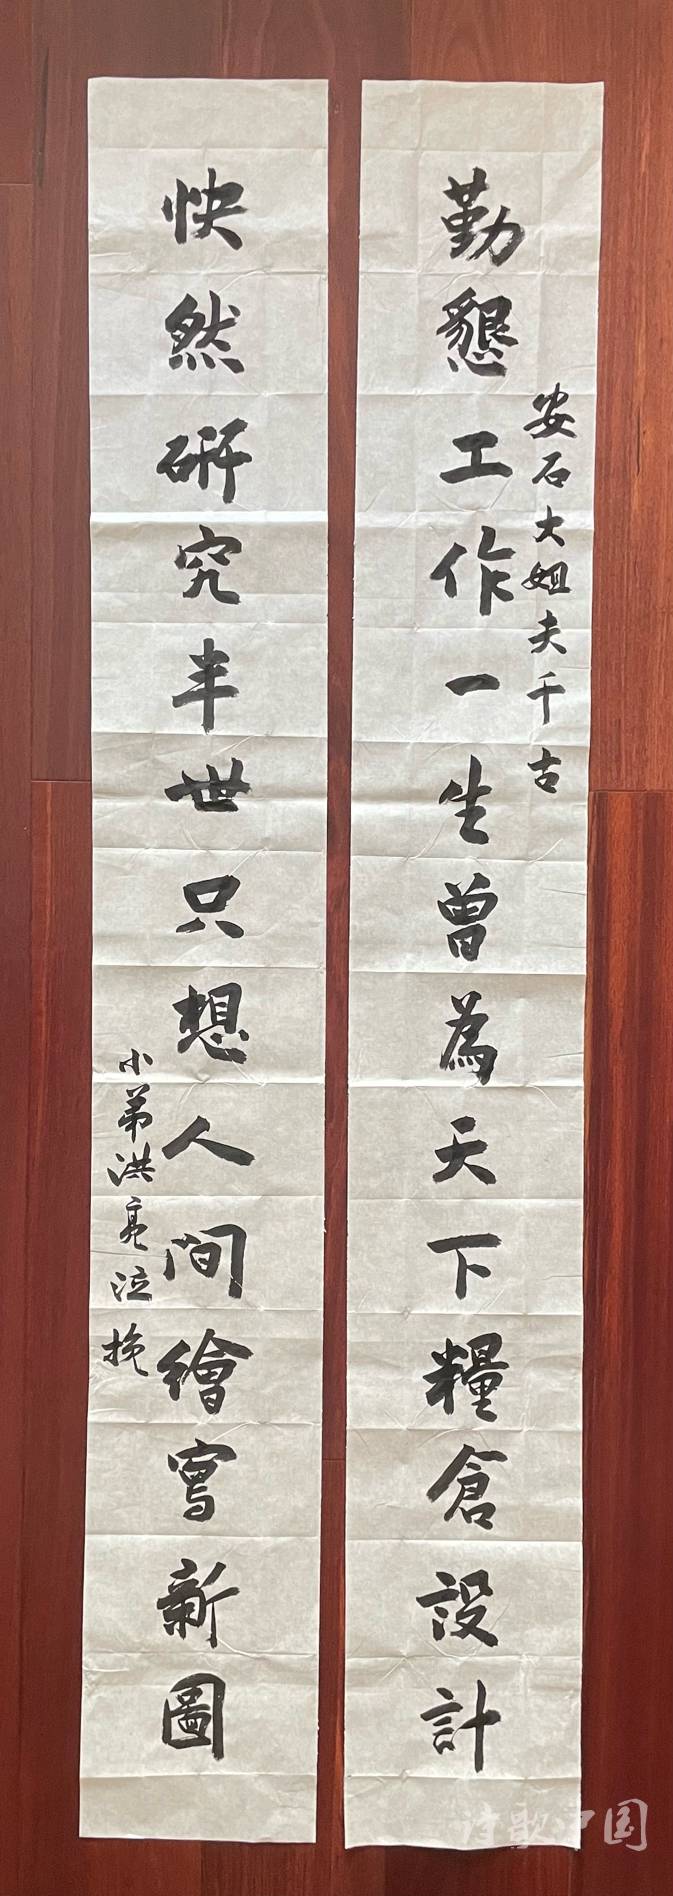 安石大姐夫千古
勤懇工作一生曾為天下糧倉設計
快然研究半世只想人間繪寫新圖
小弟洪亮泣挽
诗歌中国